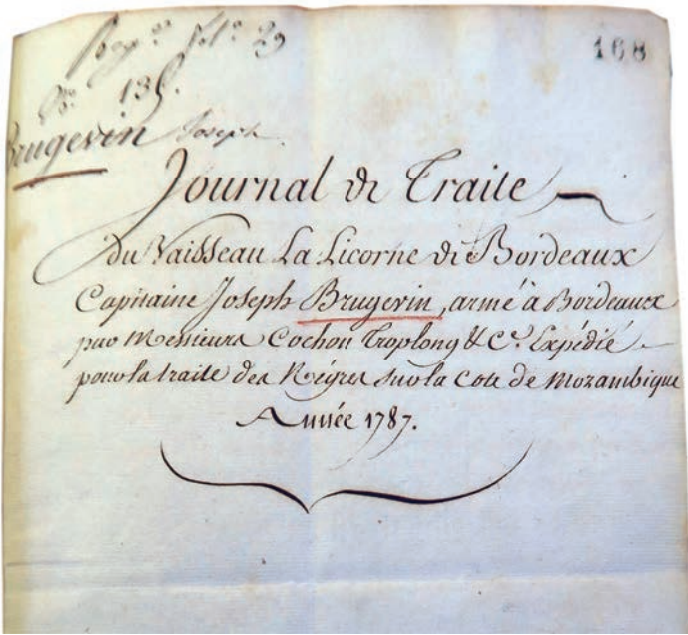 fol.º 29
168
135.
Brugevin Joseph.
Journal de Traite
du Vaisseau La Licorne de Bordeaux
Capitaine Joseph Brugevin, armé à Bordeaux
par Messieurs Cochon Troplong & Cº. Expédié
pour la traite des Négres sur la Cote de Mozambique
Année 1787.